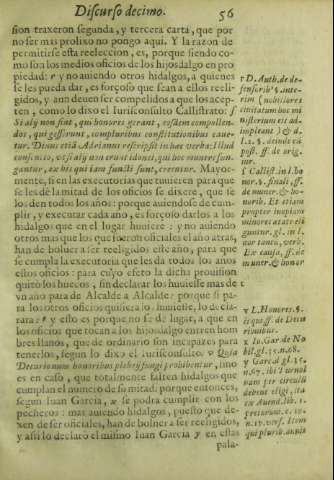 Discurso decimo. 56
sion traxeron segunda, y tercera carta, que por
no ser mas prolixo no pongo aqui. Y la razon de
permitirse esta reeleccion, es, porque siendo co-
mo son los medios oficios de los hijosdalgo en pro
piedad: r y no auiendo otros hidalgos, a quienes
se les pueda dar, es forçoso que sean a ellos reeli-
gidos, y aun deuen ser compelidos a que los acep-
ten, como lo dixo el Iurisconsulto Callistrato: s
Si aly non sint, qui honores gerant, eosdem compellen-
dos, qui gesserunt, compluribus constitutionibus caue-
tur. Diuus etiā Adrianus rescripsit in hæc verba: Illud
consentio, vt si aly non erunt idonei, qui hoc munere fun-
gantur, ex his qui iam functi sunt, creentur. Mayor-
mente, si en las executorias que tuuieren para que
se les dè la mitad de los oficios se dixere, que se
los den todos los años: porque auiendose de cum-
plir, y executar cada año, es forçoso darlos a los
hidalgos que en el lugar huuiere: y no auiendo
otros mas que los que fueron oficiales el año atras,
han de boluer a ser reeligidos este año, para que
se cumpla la executoria que les da todos los años
estos oficios: para cuyo efeto la dicha prouision
quitò los huecos, sin declarar los huuiesse mas de t
vn año para de Alcalde a Alcalde: porque si pa-
ra los otros oficios quisiera lo huuiesse, lo decla-
rara: t y esto es porque no se dè lugar, a que en
los oficios que tocan a los hijosdalgo entren hom
bres llanos, que de ordinario son incapazes para
tenerlos, segun lo dixo el Iurisconsulto: v Quia
Decurionum honoribus plebeij fungi prohibentur, sino
es en caso, que totalmente falten hidalgos que
cumplan el numero de su mitad: porque entonces,
segun Iuan Garcia, x se podra cumplir con los
pecheros: mas auiendo hidalgos, puesto que de-
xen de ser oficiales, han de boluer a ser reeligidos,
y assi lo declarò el mismo Iuan Garcia y en estas
pala-
r D. Auth. de de-
fensorib'. §. inte-
rim (nobiliores
ciuitatum hoc mi
nisterium eis ad-
impleant) & d.
l. 2. §. deinde cū
post. ff. de orig.
iur.
s Callist. in l. ho
nor. §. finali, ff.
de muner. & ho-
norib. Et etiam
propter inopiam
minores ætate eli
guntur, gl. in l.
non tantū, verb.
Ex causa, ff. de
muner. & honor
t
v L. Honores. §.
is qui ff. de Decu
rionibus.
x Io. Gar. de No
bil. gl. 35. n. 68.
y Garc. d. gl. 35.
n. 67. ibi
debent eligi, ita